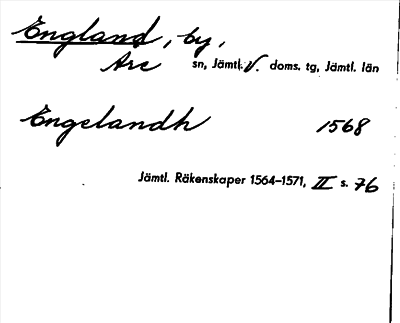 England, by,
Are sn, Jämtl. V. doms. tg, Jämtl. län
Engelandh 1568
Jämtl. Räkenskaper 1564–1571, II s. 76